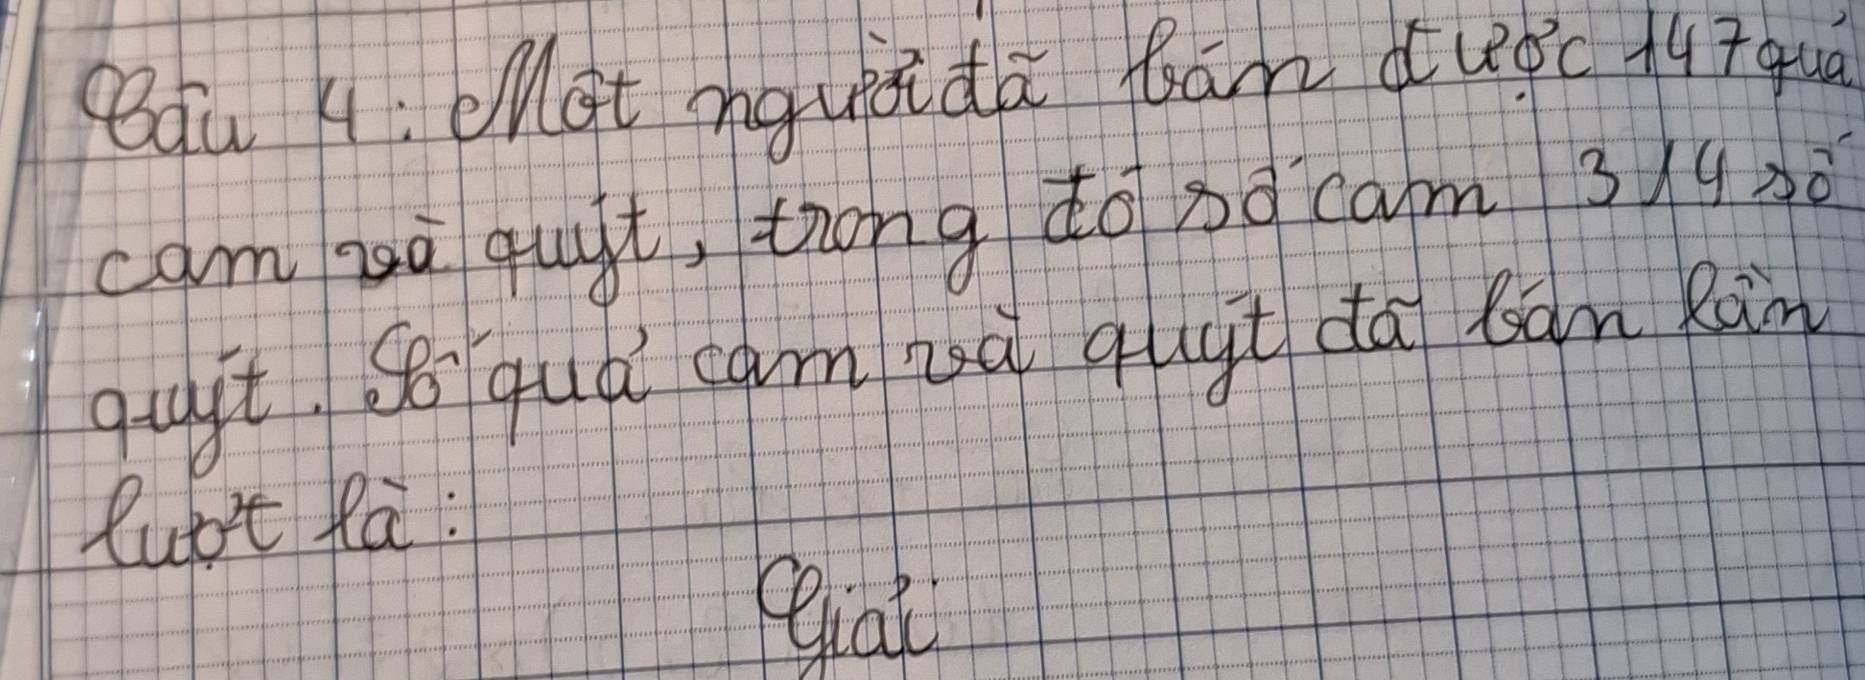 Câu 4: Một người đã bán được 147 quả
cam và quýt, trong đó số cam 3/4 số
quýt. Số quả cam và quýt đã bán lần
lượt là:
Giải